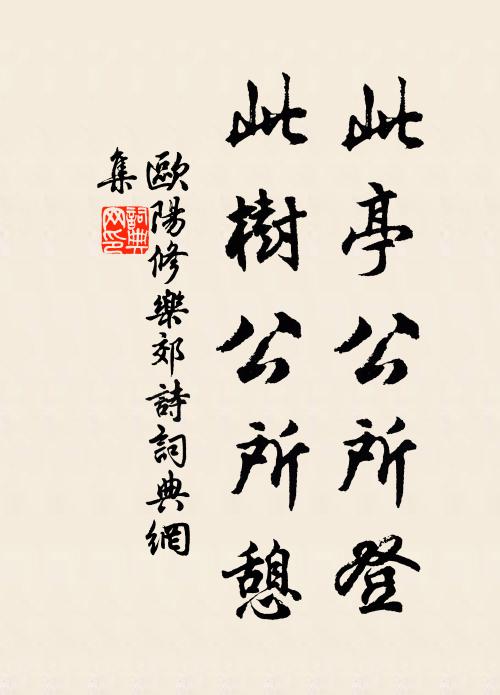 此亭公所登
此樹公所憩
歐陽修樂郊詩詞典網
集
詞典網印